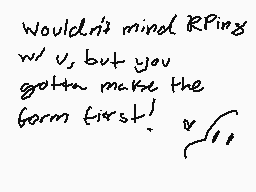 Wouldn't mind RPing
w/ u, but you
gotta make the
form first!